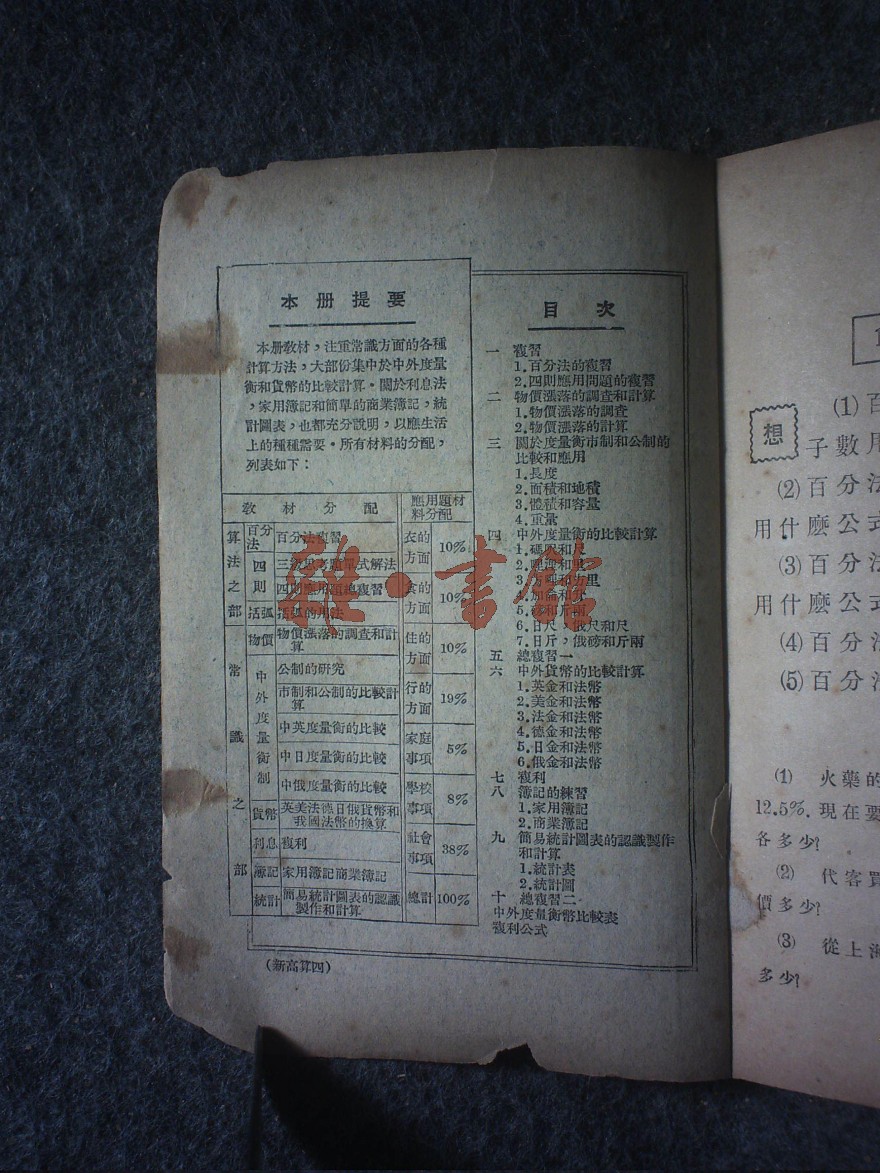 本册提要
本册敎材，注重常識方面的各種
計算方法，大部份集中於中外度量
衡和貨幣的比較計算。關於利息法
，家用簿記和簡單的商業簿記，統
計圖表，也都充分說明，以應生活
上的種種需要。所有材料的分配，
列表如下：
敎材分配
應用題材
料分配
算法之部
百分法
百分法複習
四則
四則應用題總複習
活弧
活弧的用法
常識之部
物價
物價漲落的調查和計算
中外度量衡制
公制的研究
市制和公制的比較計算
中英度量衡的比較
中日度量衡的比較
中俄度量衡的比較
貨幣
英美法德日俄貨幣和
我國法幣的換算
利息
複利
簿記
家用簿記商業簿記
統計
簡易統計圖表的認識
製作和計算
衣的方面 10%
食的方面 10%
住的方面 10%
行的方面 19%
家庭事項 5%
學校事項 8%
社會事項 38%
總計 100%
(新高算四)
目次
一 複習
1.百分法的複習
2.四則應用問題的複習
二 物價漲落的調查和計算
1.物價漲落的調查
2.物價漲落的計算
三 關於度量衡市制和公制的
比較和應用
1.長度
2.面積和地積
3.體積和容量
4.重量
四 中外度量衡的比較計算
6.日尺，俄尺和尺
7.日斤，俄磅和斤兩
五 總複習一
六 中外貨幣的比較計算
1.英金和法幣
2.美金和法幣
3.法金和法幣
4.德金和法幣
5.日金和法幣
6.俄金和法幣
七 複利
八 簿記的練習
1.家用簿記
2.商業簿記
九 簡易統計圖表的認識製作
和計算
1.統計表
2.統計圖
十 總複習二
中外度量衡幣比較表
複利公式
雜·書館
想
(1)百
子數用
(2)百分法
用什麼公式
(3)百分法
用什麼公式
(4)百分法
(5)百分法
(1) 火藥的
12.5%.現在要
各多少?
(2) 代客買
價多少?
(3) 從上海
多少?